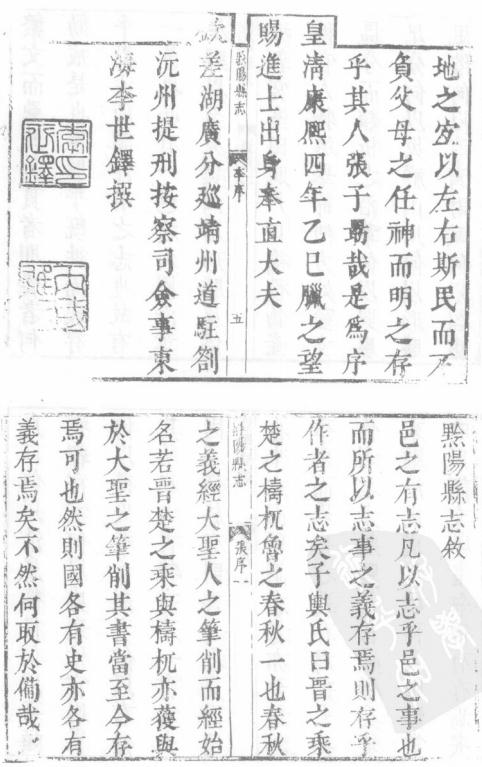 地之宜以左右斯民而不
負父母之任神而明之存
乎其人張子勗哉是為序
皇清康熙四年乙巳臘之望
賜進士出身奉直大夫
黔陽縣志
李序
五
欽差湖廣分巡靖州道駐劄
沅州提刑按察司僉事東
海李世鐸撰
黔陽縣志敘
邑之有志凡以志乎邑之事也
而所以志事之義存焉則存乎
作者之志矣子輿氏曰晉之乘
楚之檮杌魯之春秋一也春秋
黔陽縣志
張序
一
之義經大聖人之筆削而經始
名若晉楚之乘與檮杌亦獲與
於大聖之筆削其書當至今存
焉可也然則國各有史亦各有
義存焉矣不然何取於備哉